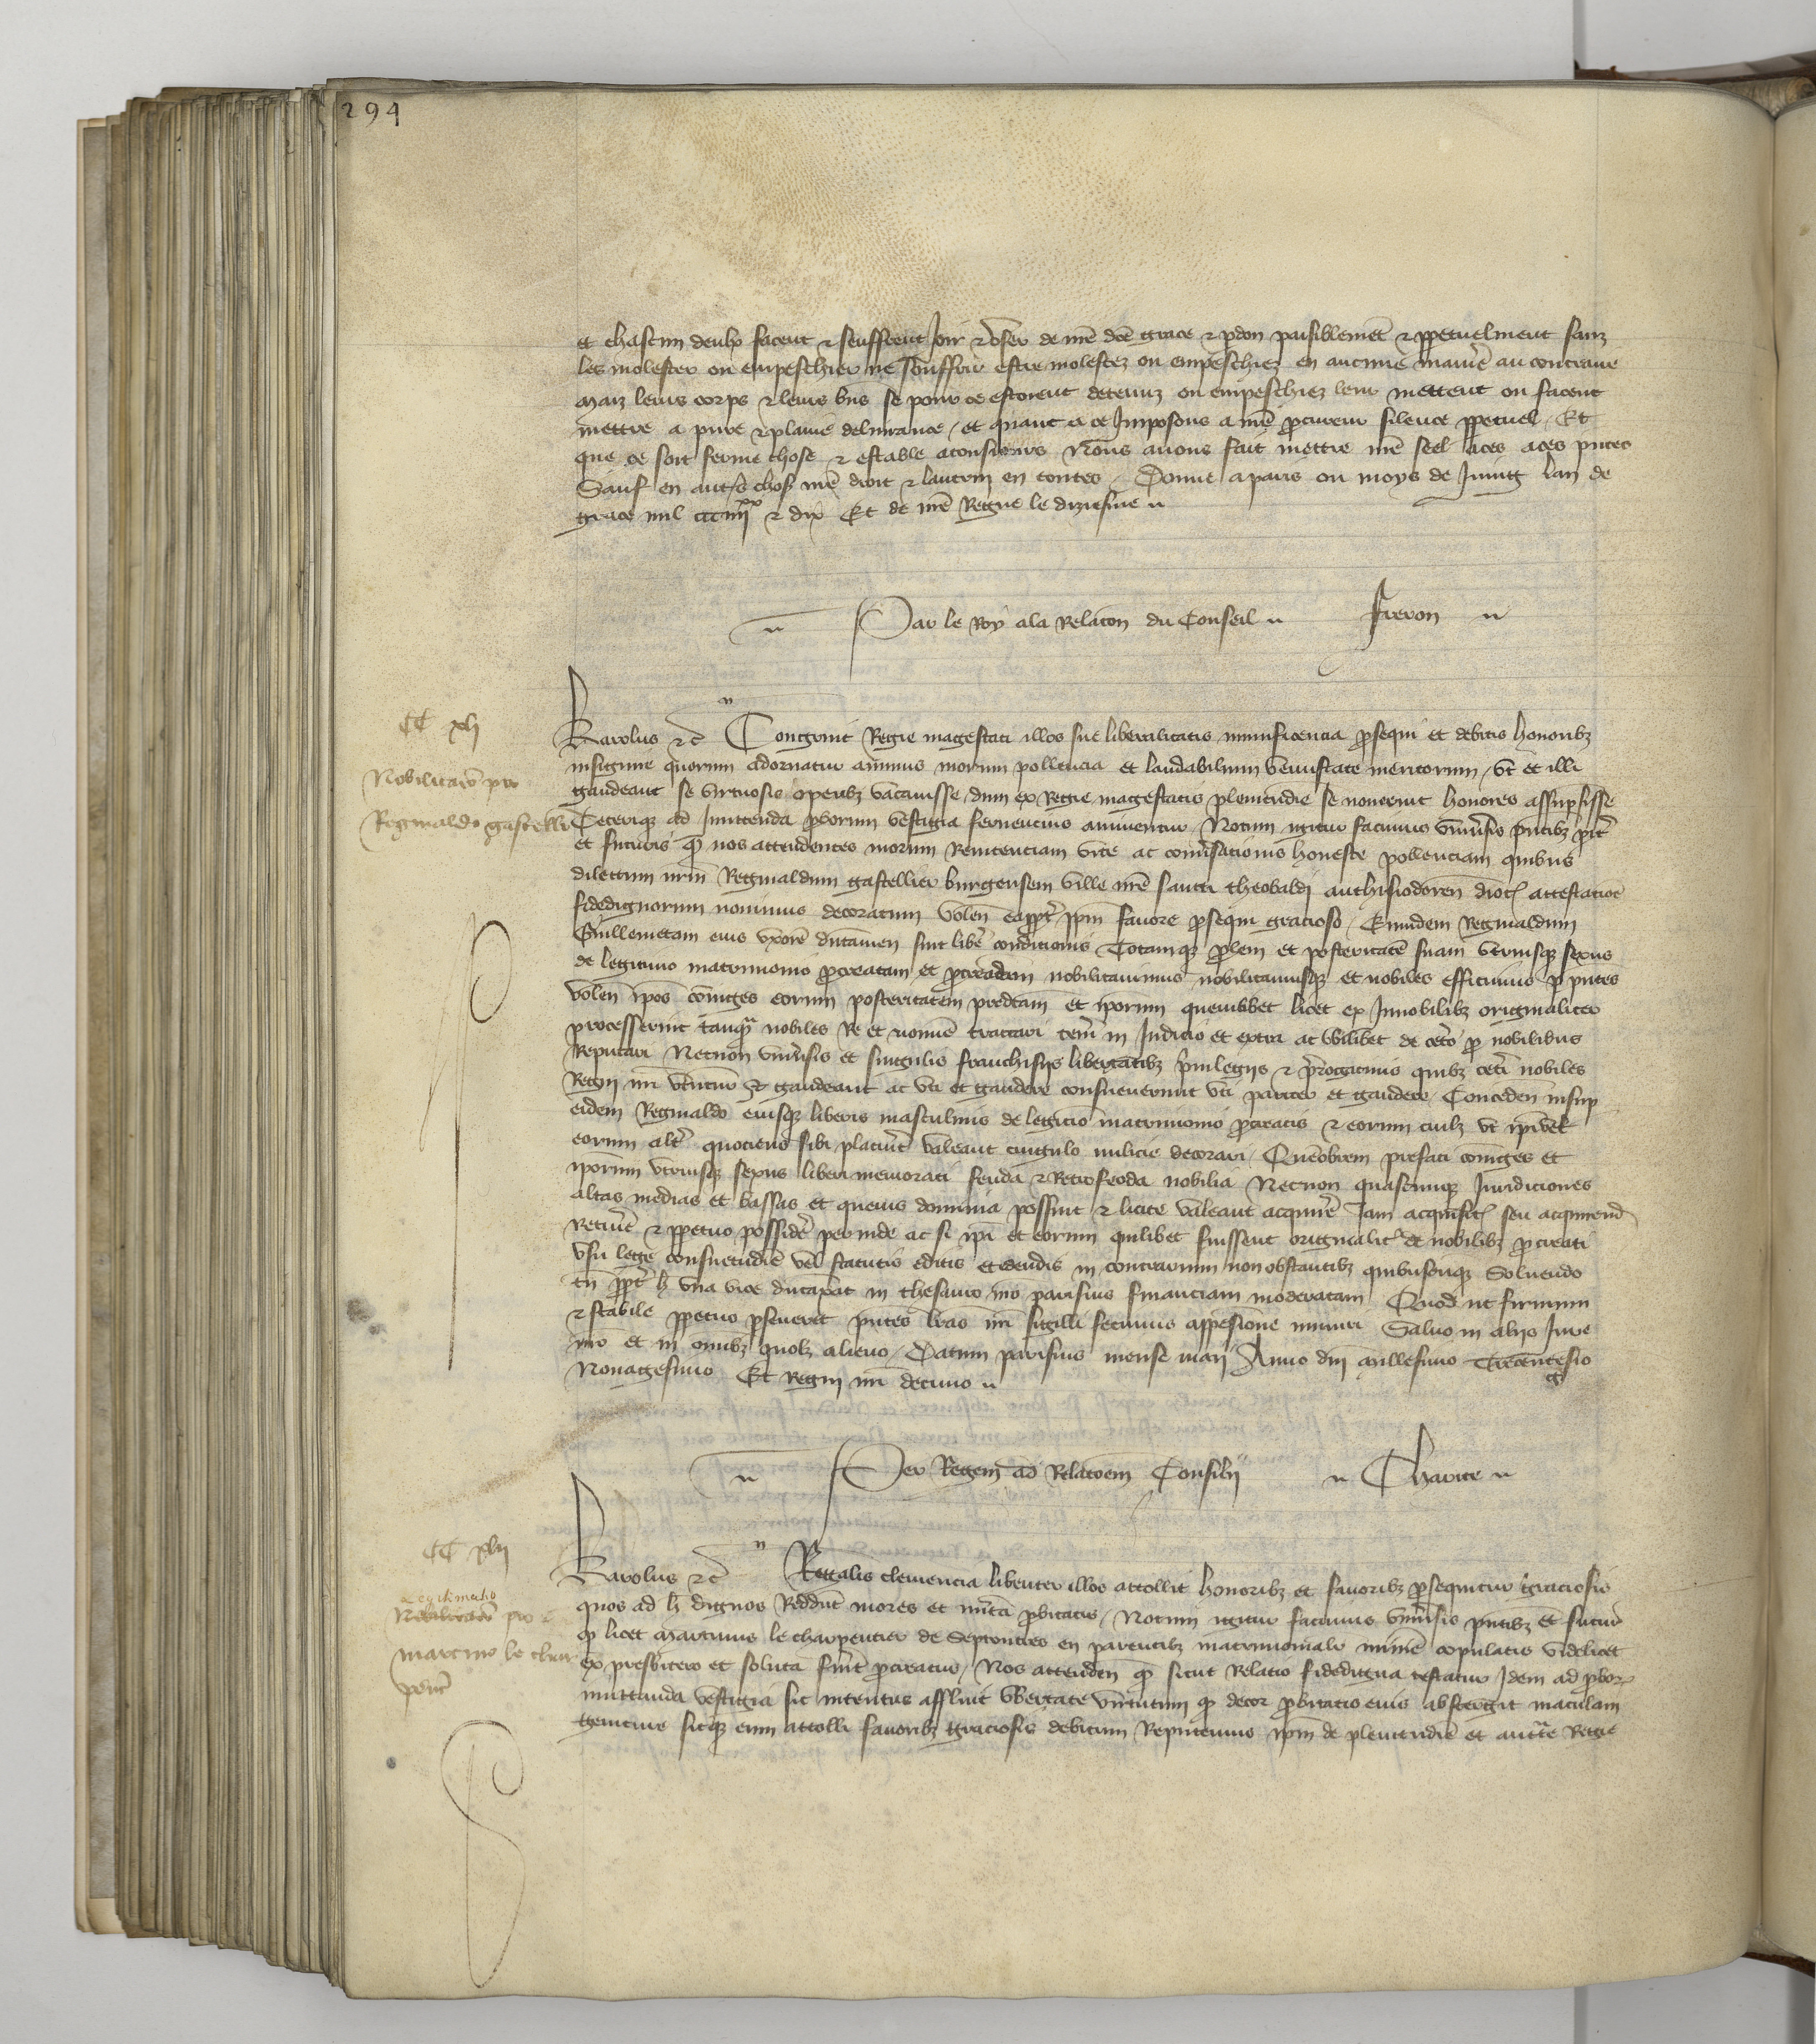 294
et chascun deulx facent et seuffrent Joir et user de nre dce grace et pdon paisiblemet et ppetuelment sanz
les molester ou empeschier ne souffrir estre molestez ou empeschiez en aucune manie au contraire
maiz leurs corps et leurs bns se pour ce estoient detenuz ou empeschiez leur mettent ou facent
mettre a pure et plaine deliurance / et quant a ce Imposons a nre pcureur silence ppetuel / Et
que ce soit ferme chose et estable atousiours Nous auons fait mettre nre seel a ces pntes
Sauf en autres choses nre droit et lautruy en toutes / Donne a paris ou moys de Juing lan de
grace mil ccc iiii xx et dix Et de nre Regne le diziesme
Par le Roy a la Relacon du Conseil Freron
CC xli
Nobilitaco pro
Reginaldo gastellier
Karolus etc Congruit Regie magestati illos sue liberalitatis munificencia psequi et debitis honoribz
insignire quorum adornatur animus morum pollencia et laudabilium venustate meritorum / vt et illi
gaudeant se virtuosis operibz vacauisse dum ex Regie magestatis plenitudie se nouerint honores assupsisse
Ceterique ad Imittenda pborum vestigia feruencius animentur / Notum igitur facimus vniusis pntibz pit
et futuris q nos attendentes morum Renitenciam vite ac conusationis honeste pollenciam quibus
dilectum nrm Reginaldum gastellier burgensem ville nre sancti theobaldi authisiodoren dioc attestacioe
fidedignorum nouimus decoratum volen eappt ipm fauore psequi gracioso / Eumdem Reginaldum
Guillemetam eius vxore dutamen sint libe condicionis Totamque plem et posteritate suam vtriusque sexus
de legitimo matrimonio pcreatam et pcreadam nobilitauimus nobilitamusque et nobiles efficimus p pntes
volen ipos coniuges eorum posteritatem predcam et iporum quemlibet licet ex Innobilibz originaliter
processerint tanqua nobiles Re et nomie tractari teneri in Judicio et extra ac vbilibet de ceto p nobilibus
Reputari Necnon vniusis et singulis franchisiis libertatibz priuilegiis et prerogatiuis quibz ceti nobiles
Regni nri vtuntur et gaudeant ac vti et gaudere consueuerunt vti pariter et gaudere / Conceden insup
eidem Reginaldo eiusque liberis masculinis de legitimo matrimonio pcreatis et eorum cuilz vt ipi vel
eorum alter quociens sibi placuerit valeant cingulo milicie decorari / Quamobrem prefati coniuges et
iporum vtriusque sexus liberi memorati feuda et Retrofeoda nobilia Necnon quascumque Juridiciones
altas medias et bassas et queuis dominia possint et licite valeant acquirere Jam acquisita seu acquirend
Retinere et ppetuo possidere perinde ac si ipi et eorum quilibet fuissent originalit de nobilibz pcreati
vsu lege consuetudie vel statutis editis et edendis in contrarium non obstantibz quibuscunque Soluendo
tn ppt h vna vice dutaxat in thesauro nro parisius financiam moderatam Quod ut firmum
et stabile ppetuo pseueret pntes lras nri sigilli fecimus appesione muniri Saluo in aliis Jure
nro et in omibz quolz alieno / Datum parisius mense maii Anno dni millesimo Trecentesio
Nonagesimo Et Regni nri decimo
Per Regem ad Relacoem Consilii Charite
CC xlii
Legitimatio
Nobilitaco pro
martino le char
pentier
Karolus etc Regalis clemencia libenter illos attollit honoribz et fauoribz psequitur graciosis
quos ad h dignos Reddunt mores et merita pbitatis / Notum igitur facimus vniusis pntibz et futur
q licet Martinus le charpentier de Septontes ex parentibz matrimonialr minime copulatis videlicet
ex presbitero et soluta fuerit pcreatus / Nos attenden q sicut Relatio fidedigna testatur Idem ad pbor
imittanda vestigia sic intentus affluit vbertate virtutum q decor pbitatis eius abstergit maculam
geniture sicque eum attolli fauoribz graciosis debitum Reputemus ipm de plenitudie et aucte Regie